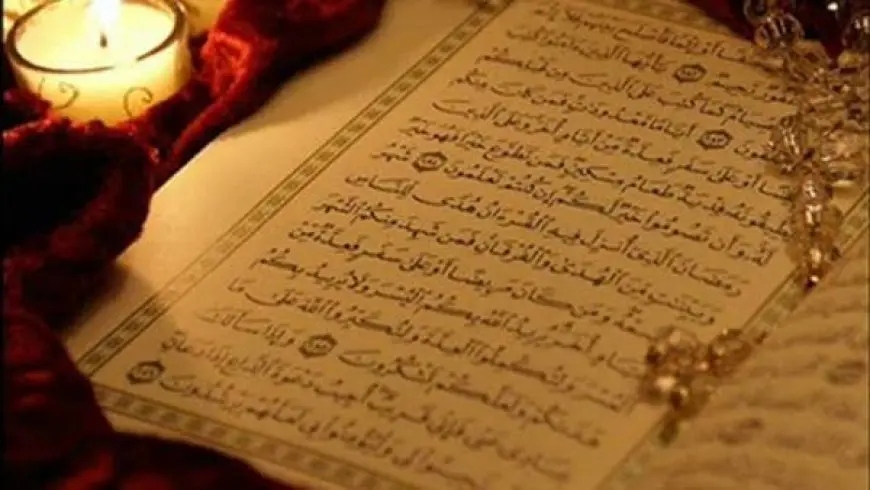 أَوْ إِثْمًا فَأَصْلَحَ بَيْنَهُمْ فَلَا إِثْمَ
رَّحِيمٌ ١٨٢ يَٰٓأَيُّهَا الَّذِينَ ءَامَنُوا كُتِبَ
الصِّيَامُ كَمَا كُتِبَ عَلَى الَّذِينَ مِن قَبْلِكُمْ
تَتَّقُونَ ١٨٣ أَيَّامًا مَّعْدُودَٰتٍ فَمَن كَانَ مِنكُم
أَوْ عَلَىٰ سَفَرٍ فَعِدَّةٌ مِّنْ أَيَّامٍ أُخَرَ وَعَلَى الَّذِينَ
يُطِيقُونَهُ فِدْيَةٌ طَعَامُ مِسْكِينٍ فَمَن تَطَوَّعَ خَيْرًا فَهُوَ خَيْرٌ
لَّهُ وَأَن تَصُومُوا خَيْرٌ لَّكُمْ إِن كُنتُمْ تَعْلَمُونَ ١٨٤ شَهْرُ
رَمَضَانَ الَّذِي أُنزِلَ فِيهِ الْقُرْءَانُ هُدًى لِّلنَّاسِ
وَبَيِّنَٰتٍ مِّنَ الْهُدَىٰ وَالْفُرْقَانِ فَمَن شَهِدَ مِنكُمُ الشَّهْرَ
وَمَن كَانَ مَرِيضًا أَوْ عَلَىٰ سَفَرٍ فَعِدَّةٌ مِّنْ
أَيَّامٍ أُخَرَ يُرِيدُ اللَّهُ بِكُمُ الْيُسْرَ وَلَا يُرِيدُ بِكُمُ
الْعُسْرَ وَلِتُكْمِلُوا الْعِدَّةَ وَلِتُكَبِّرُوا اللَّهَ عَلَىٰ مَا
هَدَىٰكُمْ وَلَعَلَّكُمْ تَشْكُرُونَ ١٨٥ وَإِذَا سَأَلَكَ
عِبَادِي عَنِّي فَإِنِّي قَرِيبٌ أُجِيبُ دَعْوَةَ الدَّاعِ إِذَا دَعَانِ
لِي وَلْيُؤْمِنُوا بِي لَعَلَّهُمْ يَرْشُدُونَ ١٨٦